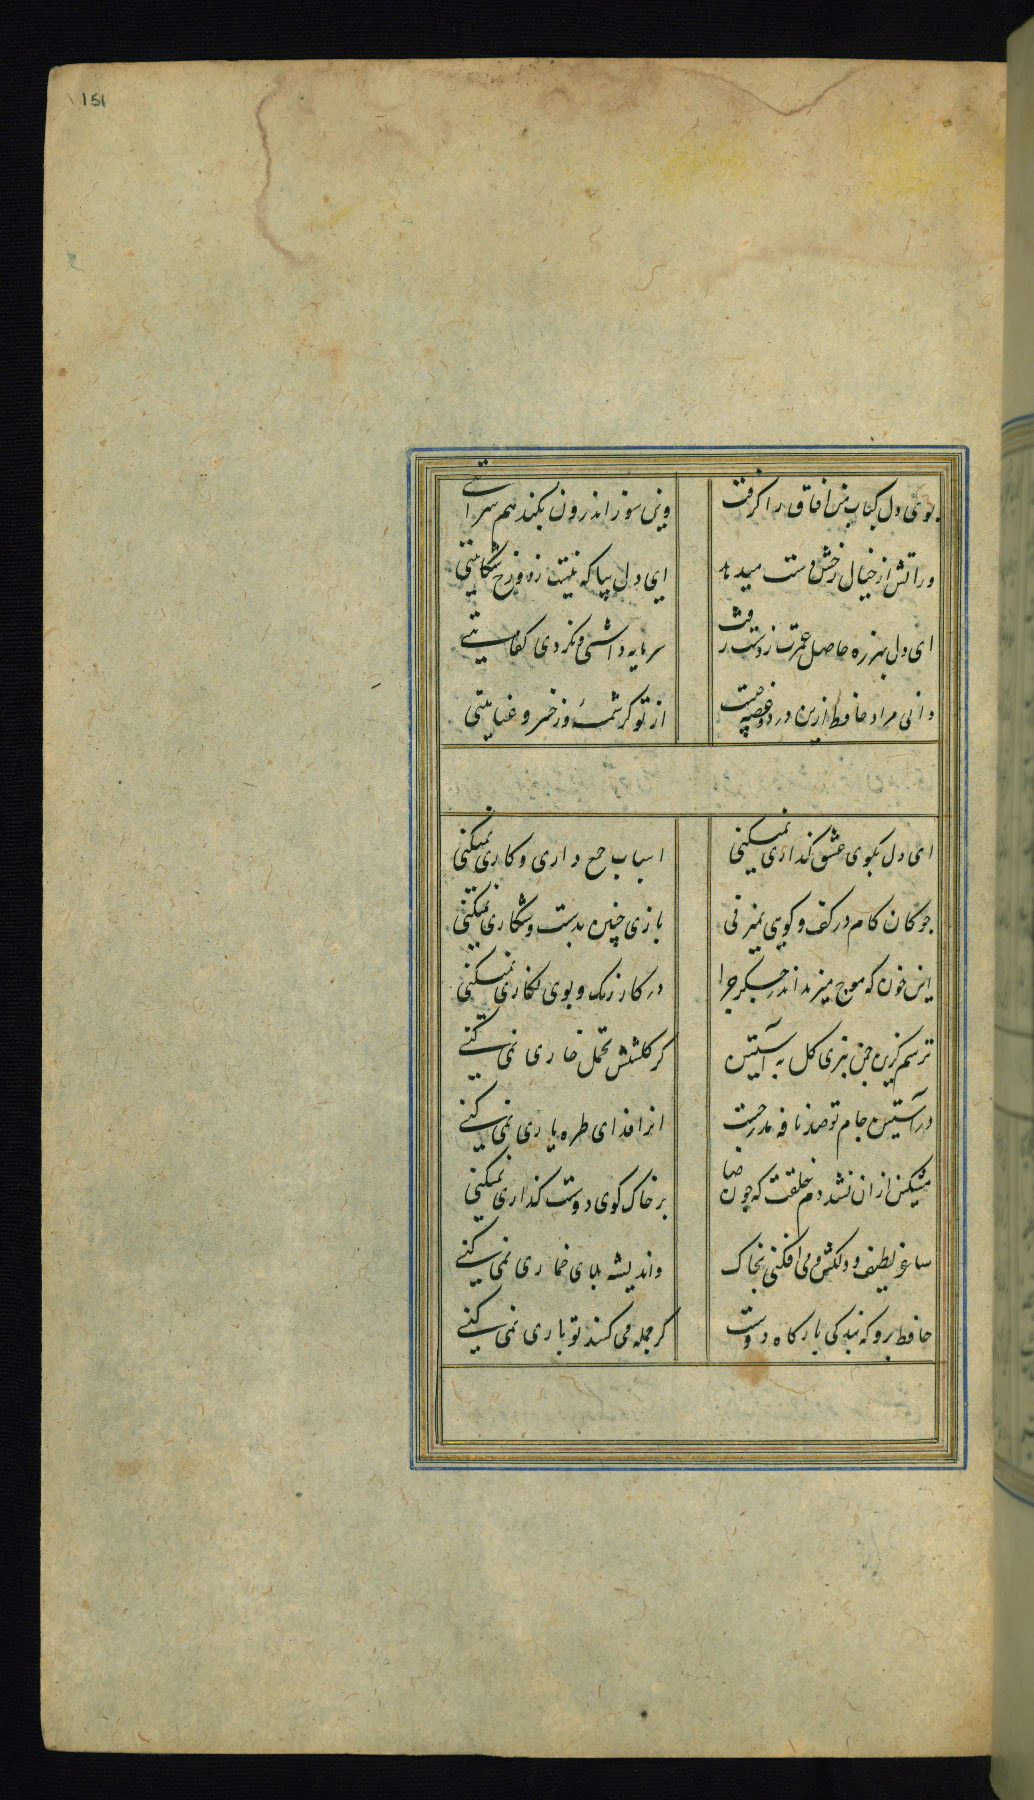 151
بوی دل کباب من افاق را گرفت
وین سوز اندرون بکند هم سرایتی
در اتش ار خیال رخش دست میدهد
ای دل بیا که نیست ز دوزخ شکایتی
ای دل بهرزه حاصل عمرت ز دست رفت
سرمایه داشتی و نکردی کفایتی
دانی مراد حافظ ازین درد و غصه چیست
از تو کرشمه وز خسرو عنایتی
ای دل بکوی عشق گذاری نمیکنی
اسباب جمع داری و کاری نمیکنی
چوکان کام در کف و کویی نمیزنی
بازی چنین بدست و شکاری نمیکنی
این خون که موج میزند اندر جگر چرا
در کار رنک و بوی نگاری نمیکنی
ترسم کزین چمن نبری کل به آستین
کز کلشنش تحمل خاری نمی کنی
در آستین جام تو صد نافه مدرجست
از افدای طره یاری نمی کنی
مشکین ازان نشد دم خلقت که چون صبا
بر خاک کوی دوست گذاری نمیکنی
ساغر لطیف و دلکش و می افکنی بخاک
واندیشه بلای خماری نمی کنی
حافظ برو که بندگی بارگاه دوست
کر جمله می کنند تو باری نمی کنی